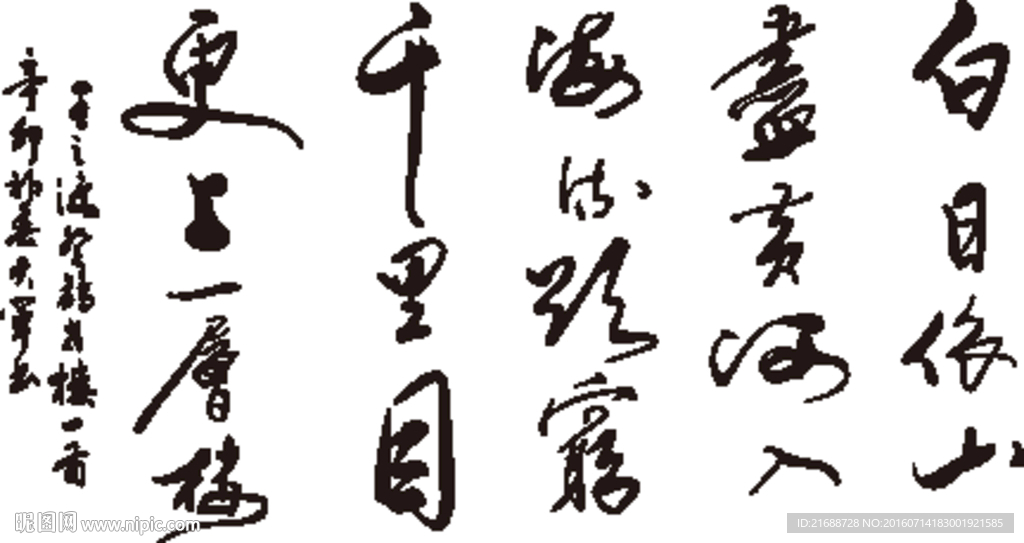 白日依山
盡黄河入
海流欲窮
千里目
更上一層樓
王之渙登鸛雀樓一首
辛卯
昵图网 www.nipic.com
ID:21688728 NO:20160714183001921585